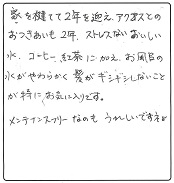 家を建てて2年を迎え、アクアスとの
おつきあいも2年、ストレスないおいしい
水、コーヒー、紅茶に加え、お風呂の
水がやわらかく髪がギシギシしないこと
が特にお気に入りです。
メンテナンスフリーなのも うれしいですネ。